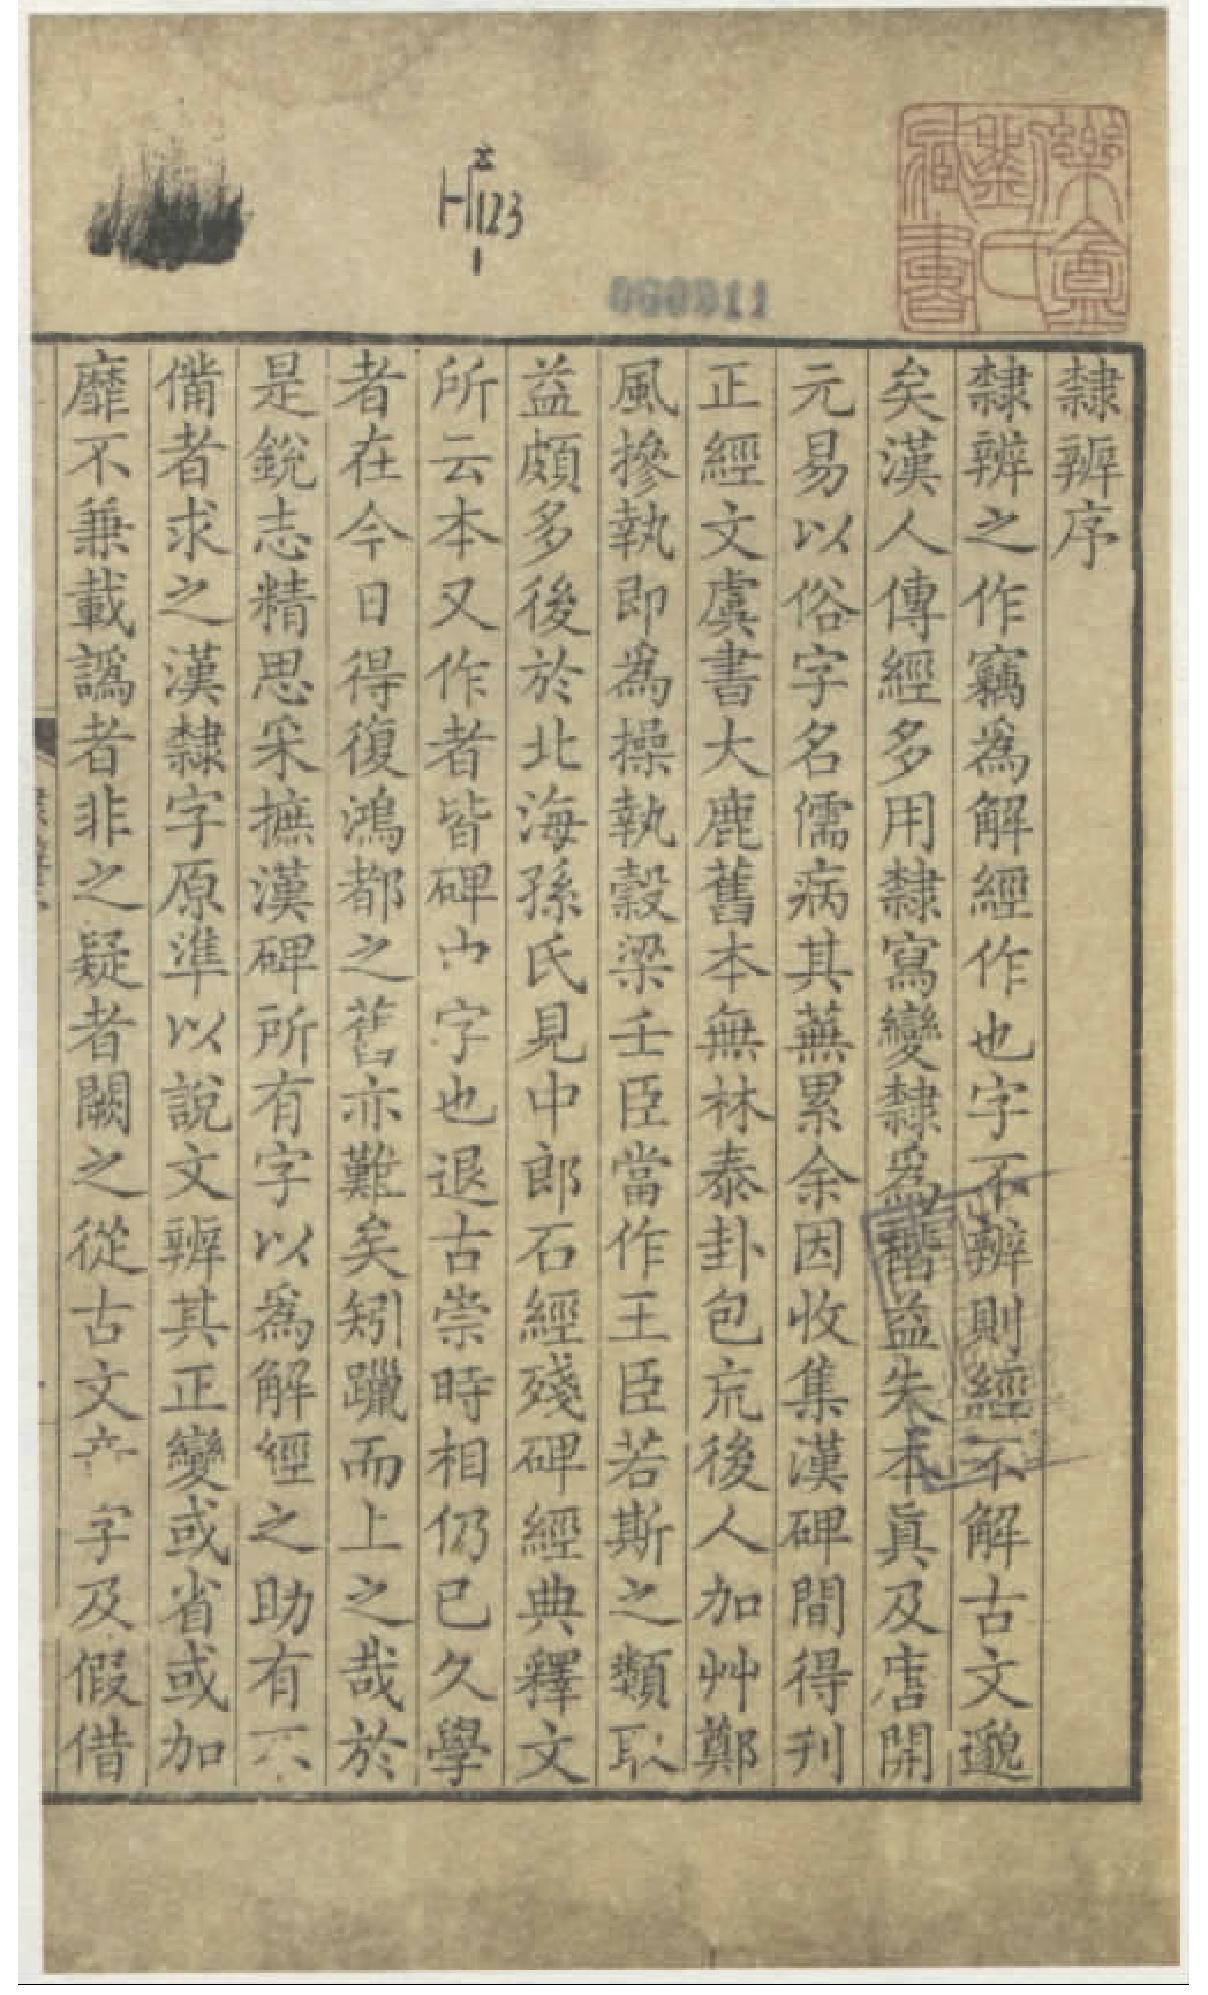 隸辨序
隸辨之作竊爲解經作也字不辨則經不解古文邈
矣漢人傳經多用隸寫變隸爲楷益失本眞及唐開
元易以俗字名儒病其蕪累余因收集漢碑間得刋
正經文虞書大鹿舊本無林泰卦包巟後人加艸鄭
風摻執卽爲操執穀梁壬臣當作王臣若斯之類取
益頗多後於北海孫氏見中郎石經殘碑經典釋文
所云本又作者皆碑中字也退古崇時相仍已久學
者在今日得復鴻都之舊亦難矣矧躐而上之哉於
是銳志精思采摭漢碑所有字以爲解經之助有不
備者求之漢隸字原準以說文辨其正變或省或加
靡不兼載譌者非之疑者闕之從古文奇字及假借
Z
H123
1
000311